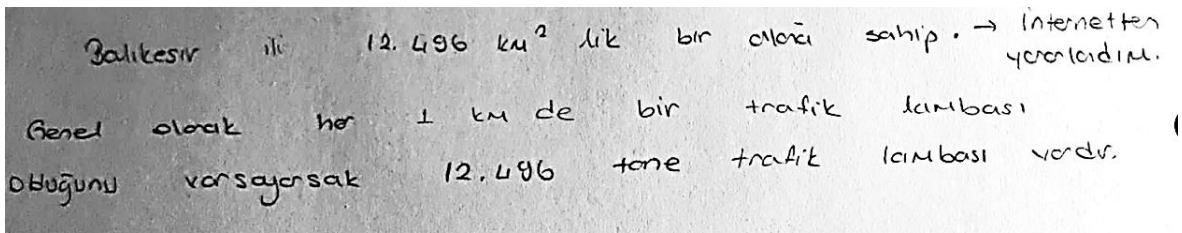 Balıkesir ili 12.496 km² lik bir alana sahip. → internetten
yararlandım.
Genel olarak her 1 km de bir trafik lambası
olduğunu varsayarsak 12.496 tane trafik lambası vardır.